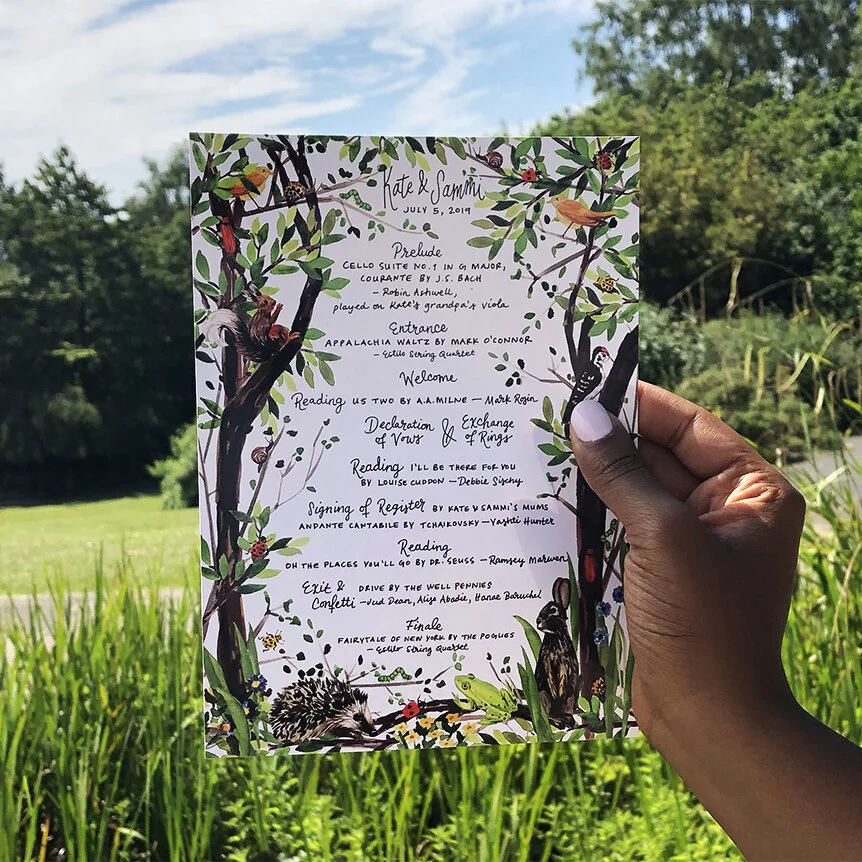 Kate & Sammi
JULY 5, 2019
Prelude
CELLO SUITE NO. 1 IN G MAJOR,
COURANTE BY J.S. BACH
- Robin Ashwell,
played on Kate's grandpa's viola
Entrance
APPALACHIA WALTZ BY MARK O'CONNOR
- Estilo String Quartet
Welcome
Reading US TWO BY A.A. MILNE - Mark Rozin
Declaration of Vows & Exchange of Rings
Reading I'LL BE THERE FOR YOU
BY LOUISE CUDDON - Debbie Sischy
Signing of Register BY KATE & SAMMI'S MUMS
ANDANTE CANTABILE BY TCHAIKOVSKY - Vashti Hunter
Reading
OH THE PLACES YOU'LL GO BY DR. SEUSS - Ramsey Marwan
Exit & DRIVE BY THE WELL PENNIES
Confetti - Jud Dean, Alize Abadie, Hanae Baruchel
Finale
FAIRYTALE OF NEW YORK BY THE POGUES
- Estilo String Quartet